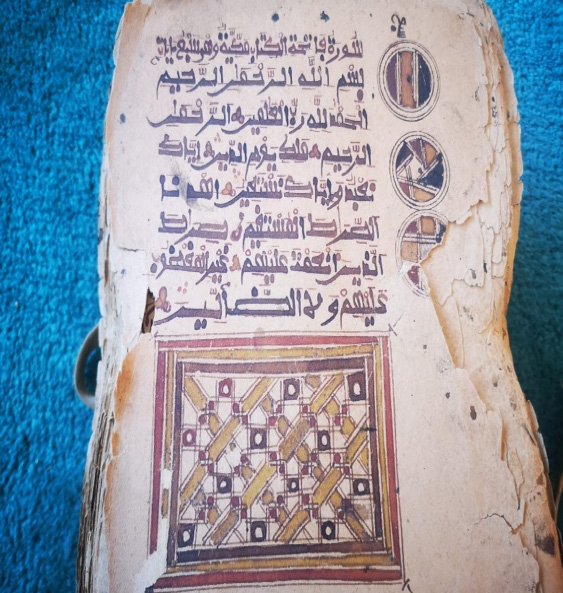 سورة فاتحة الكتاب مكية وهي سبع ايات
بسم الله الرحمن الرحيم
الحمد لله رب العلمين الرحمن
الرحيم ملك يوم الدين اياك
نعبد واياك نستعين اهدنا
الصراط المستقيم صراط
الذين انعمت عليهم غير المغضوب
عليهم ولا الضالين